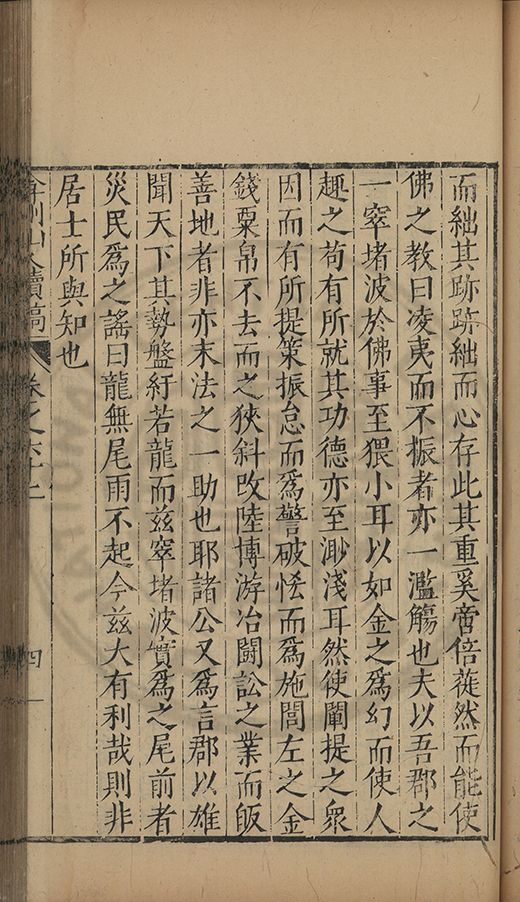 而絀其跡跡絀而心存此其重奚啻倍蓰然而能使
佛之教曰凌夷而不振者亦一濫觴也夫以吾郡之
一窣堵波於佛事至猥小耳以如金之爲幻而使人
趣之苟有所就其功德亦至渺淺耳然使闡提之衆
因而有所提策振怠而爲警破恡而爲施閭左之金
錢粟帛不去而之狹斜改陸博游冶鬪訟之業而皈
善地者非亦末法之一助也耶諸公又爲言郡以雄
聞天下其勢盤紆若龍而茲窣堵波實爲之尾前者
災民爲之謠曰龍無尾雨不起今茲大有利哉則非
居士所與知也
弇州山人續稿
卷之六十二
四